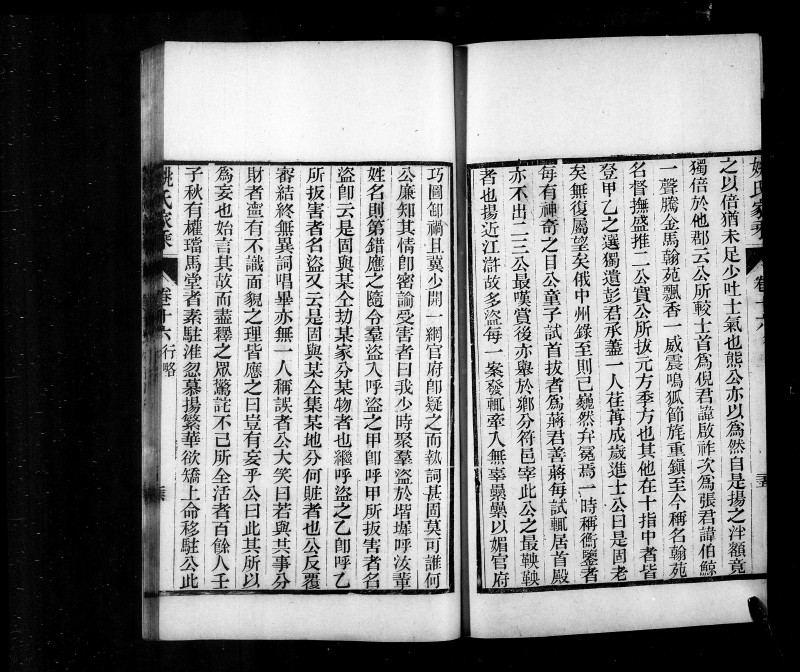 姚氏家乘
卷十六
之以倍猶未足少吐士氣也熊公亦以為然自是揚之泮額竟
獨倍於他郡云公所較士首為倪君諱啟祚次為張君諱伯鯨
一聲騰金馬翰苑飄香一威震鳴狐節旄重鎮至今稱名翰苑
名督撫盛推二公實公所拔元方季方也其他在十指中者皆
登甲乙之選獨遺彭君承藎一人往苒成歲進士公曰是固老
矣無復屬望矣俄中州錄至則已巍然弁冕焉一時稱衡鑒者
每有神奇之目公童子試首拔者為蔣君善蔣每試輒居首殿
亦不出二三公最嘆賞後亦舉於鄉分符邑宰此公之最鞅鞅
者也揚近江滸故多盜每一案發輒牽入無辜纍纍以媚官府
巧圖卸禍且冀少開一網官府卽疑之而執詞甚固莫可誰何
公廉知其情卽密諭受害者曰我少時聚羣盜於堦墀呼汝輩
姓名則第錯應之隨令羣盜入呼盜之甲卽呼甲所扳害者名
盜卽云是固與某仝劫某家分某物者也繼呼盜之乙卽呼乙
所扳害者名盜又云是固與某仝集某地分何賍者也公反覆
審結終無異詞唱畢亦無一人稱誤者公大笑曰若與其事分
財者寧有不識面貌之理皆應之曰豈有妄乎公曰此其所以
為妄也始言其故而盡釋之眾驚詫不已所全活者百餘人壬
子秋有權璫馬堂者素駐淮忽慕揚繁華欲矯上命移駐公此
姚氏家乘
卷十六 行略